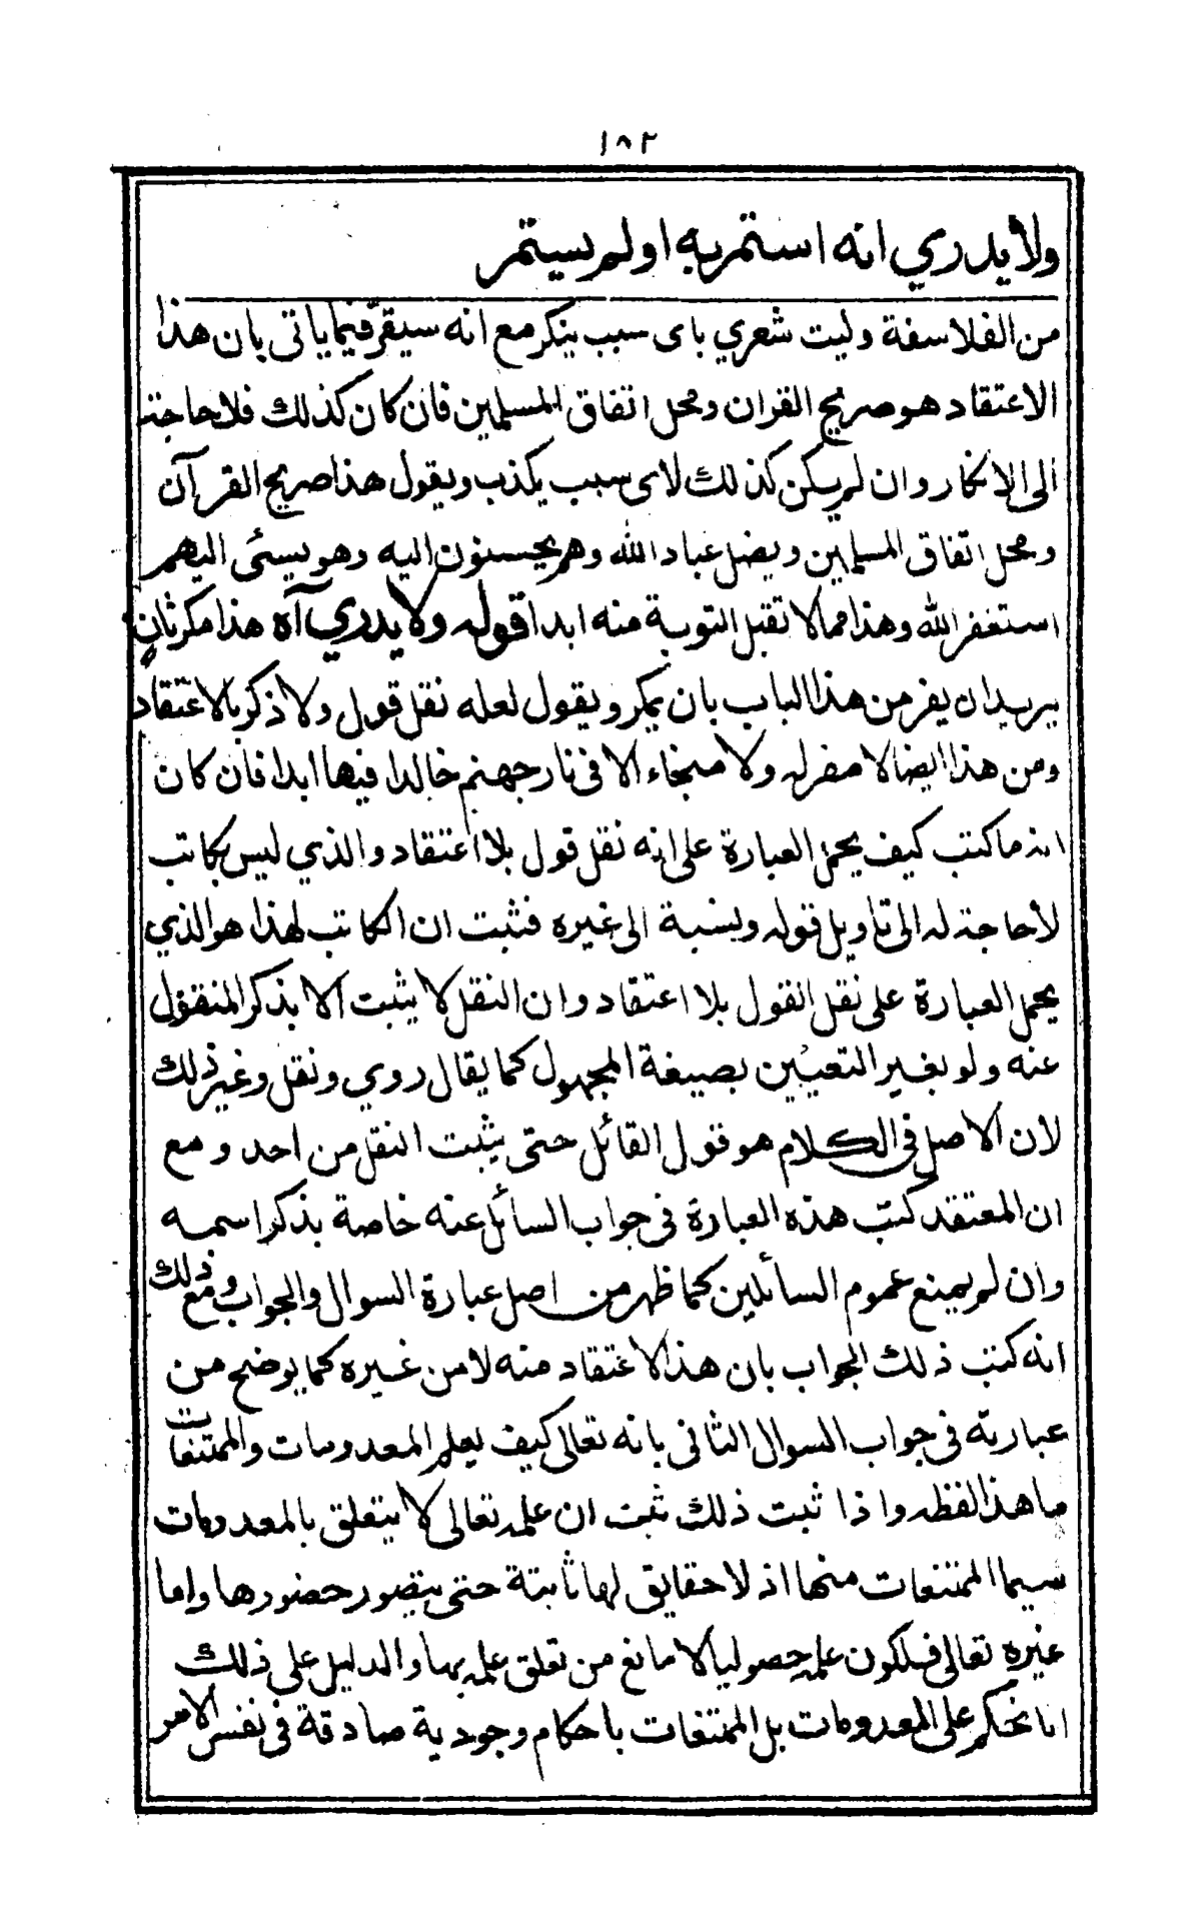 ١٨٢
ولا يدري انه استمر به او لم يستمر
من الفلاسفة وليت شعري باى سبب ينكر مع انه سيقرّ فيما ياتى بان هذا
الاعتقاد هو صريح القران ومحل اتفاق المسلمين فان كان كذلك فلا حاجته
الى الانكار وان لم يكن كذلك لاى سبب يكذب ويقول هذا صريح القرآن
ومحل اتفاق المسلمين ويضل عباد الله وهم يحسنون اليه وهو يسئى اليهم
استغفر الله وهذا مما لا تقبل التوبة منه ابدا قوله ولا يدري آه هذا مكر ثان
يريد ان يفر من هذا الباب بان يمكر ويقول لعله نقل قول ولا اذكر بالاعتقاد
ومن هذا ايضا لا مفر له ولا منجاء الا فى نار جهنم خالدا فيها ابدا فان كان
انه ما كتب كيف يحمل العبارة على انه نقل قول بلا اعتقاد والذي ليس بكاتب
لا حاجة له الى تاويل قوله وبنسبة الى غيره فثبت ان الكاتب لهذا هو الذي
يحمل العبارة على نقل القول بلا اعتقاد وان النقل لا يثبت الا بذكر المنقول
عنه ولو بغير التعيين بصيغة المجهول كما يقال روي ونقل وغير ذلك
لان الاصل فى الكلام هو قول القائل حتى يثبت النقل من احد ومع
ان المعتقد كتب هذه العبارة فى جواب السائل عنه خاصة بذكر اسمه
وان لم يمنع عموم السائلين كما ظهر من اصل عبارة السوال والجواب ومع ذلك
انه كتب ذلك الجواب بان هذا الاعتقاد منه لا من غيره كما يوضح من
عبارته فى جواب السوال الثانى بانه تعالى كيف يعلم المعدومات والممتنعات
ما هذا لفظه واذا ثبت ذلك ثبت ان علمه تعالى لا يتعلق بالمعدومات
سيما الممتنعات منها اذ لا حقايق لها ثابتة حتى يتصور حضورها واما
غيره تعالى فلكون علمه حصوليا لا مانع من تعلق علمه بها والدليل على ذلك
انا نحكم على المعدومات بل الممتنعات باحكام وجودية صادقة فى نفس الامر